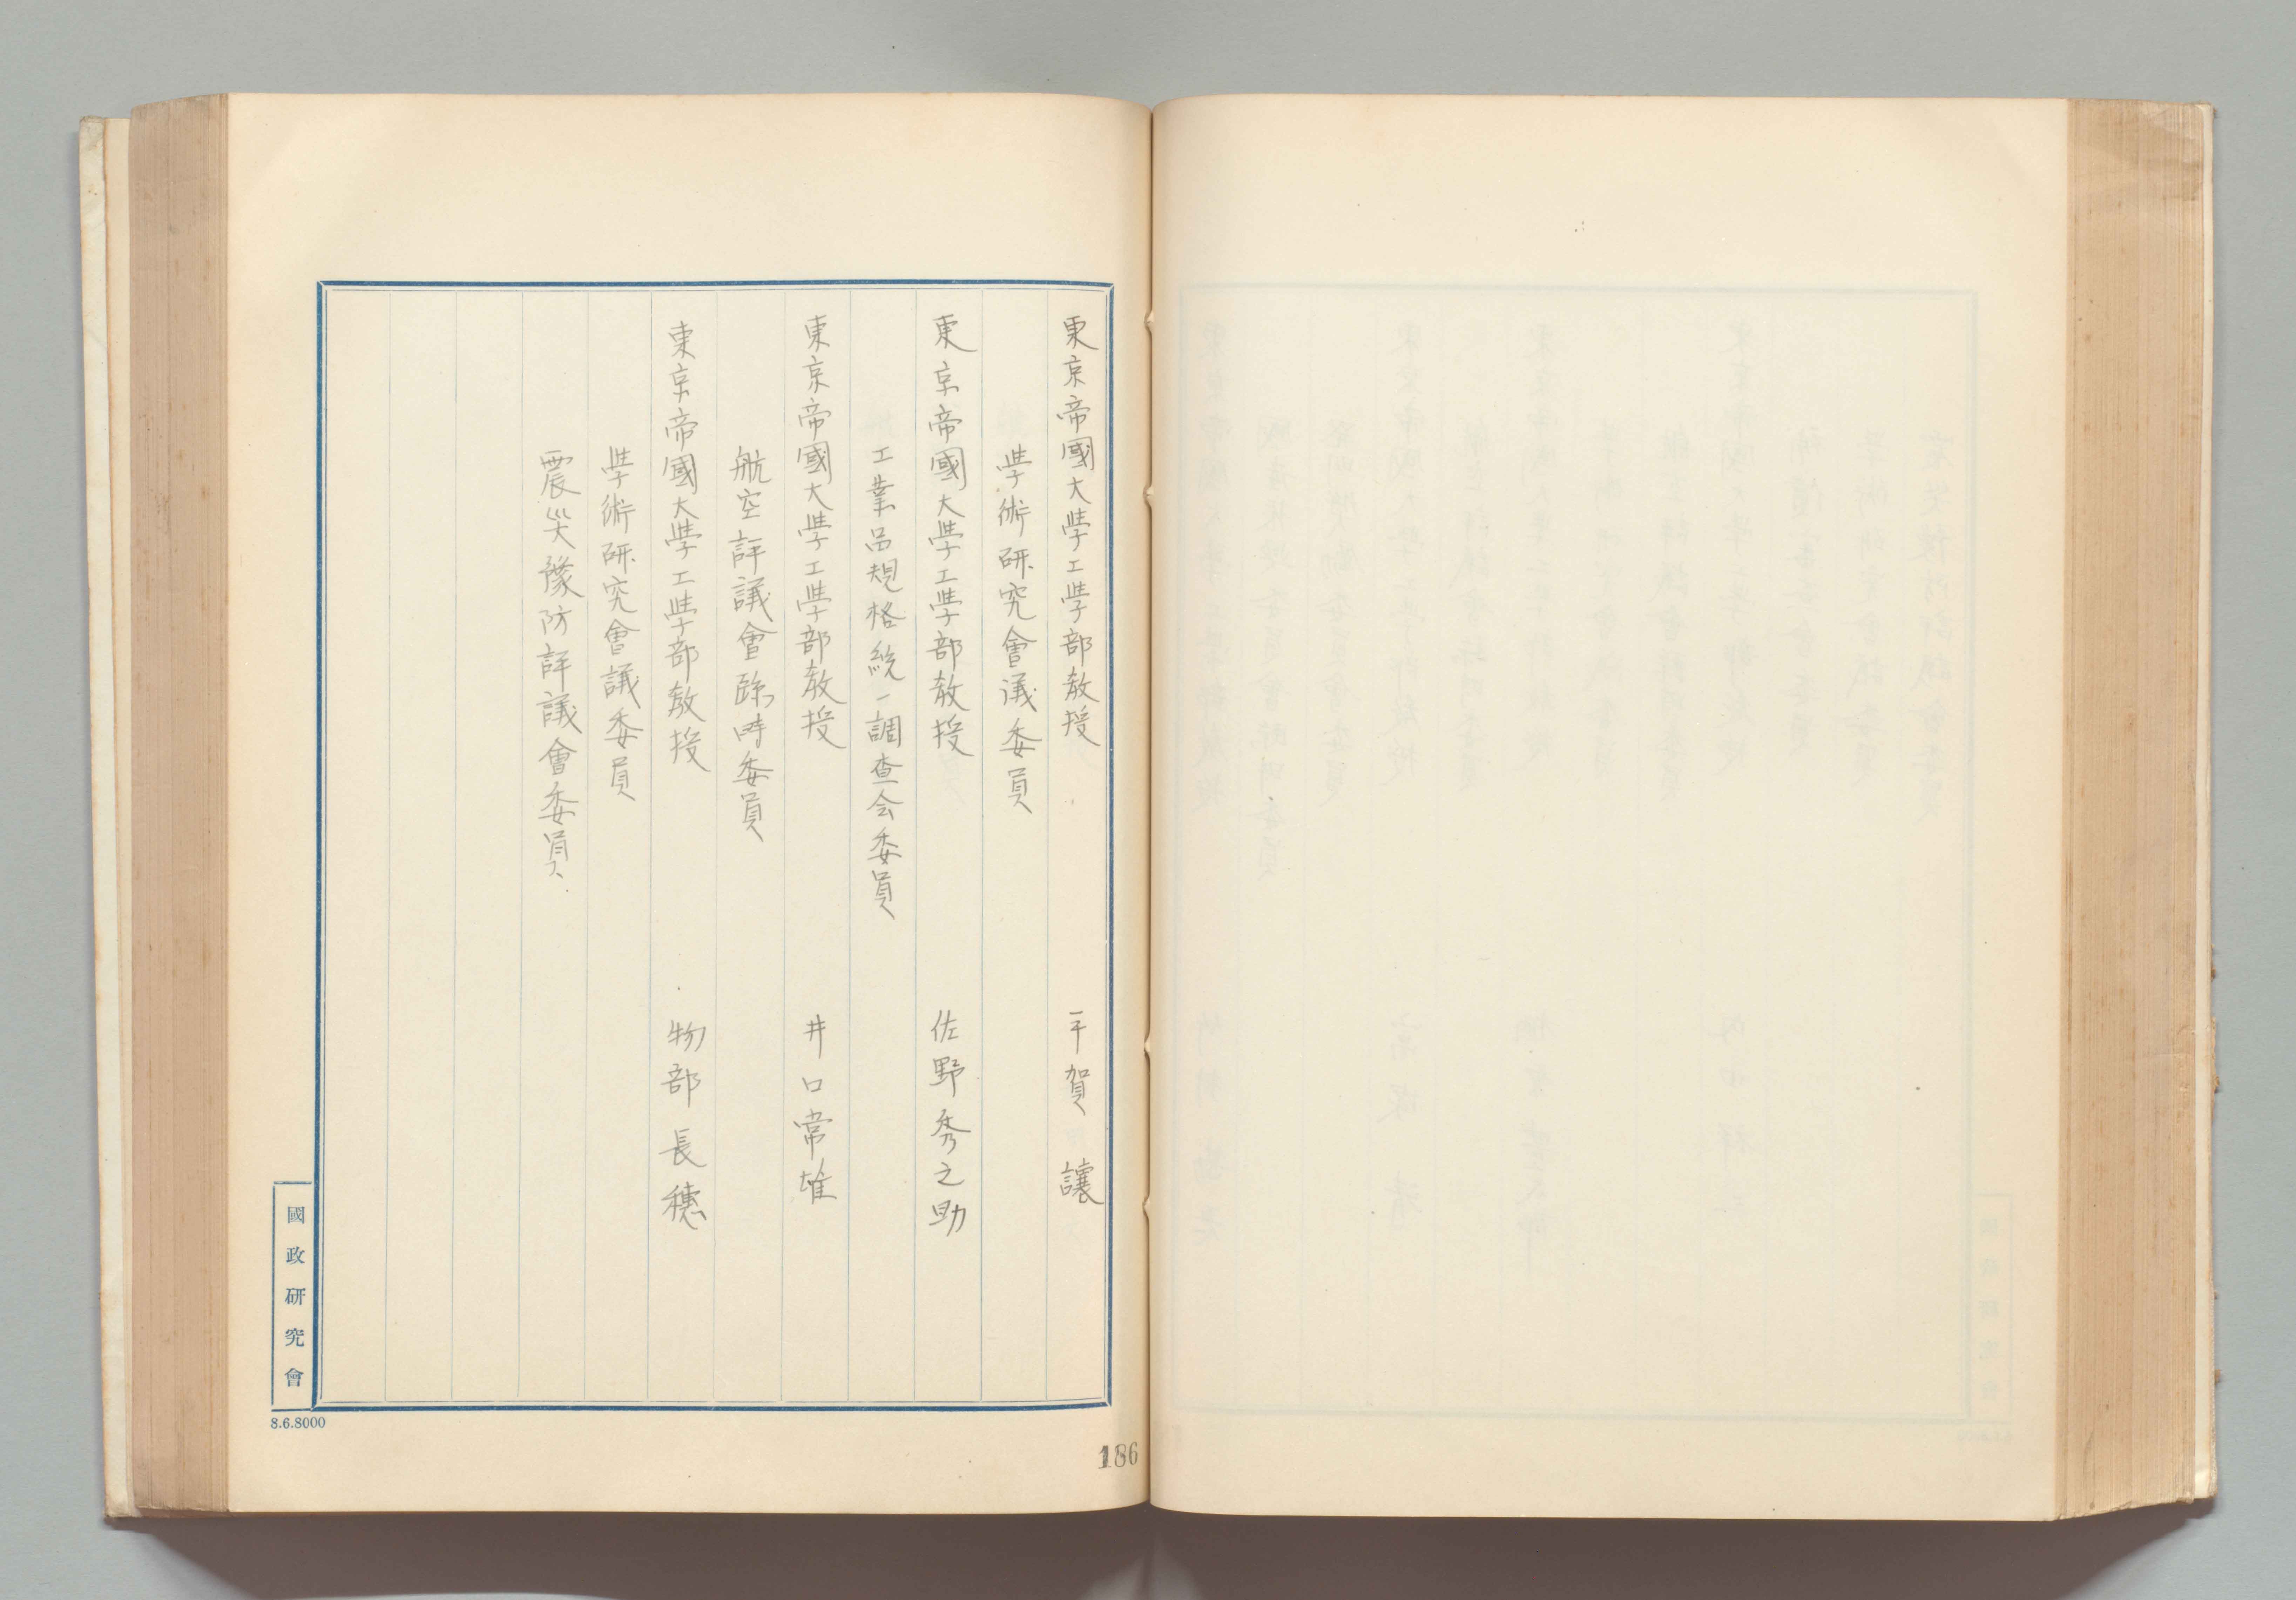 東京帝國大學工學部教授 平賀讓
學術研究會議委員
東京帝國大學工學部教授 佐野秀之助
工業品規格統一調查会委員
東京帝國大學工學部教授 井口常雄
航空評議會臨時委員
東京帝國大學工學部教授 物部長穗
學術研究會議委員
震災豫防評議會委員
國政研究會
8.6.8000
186